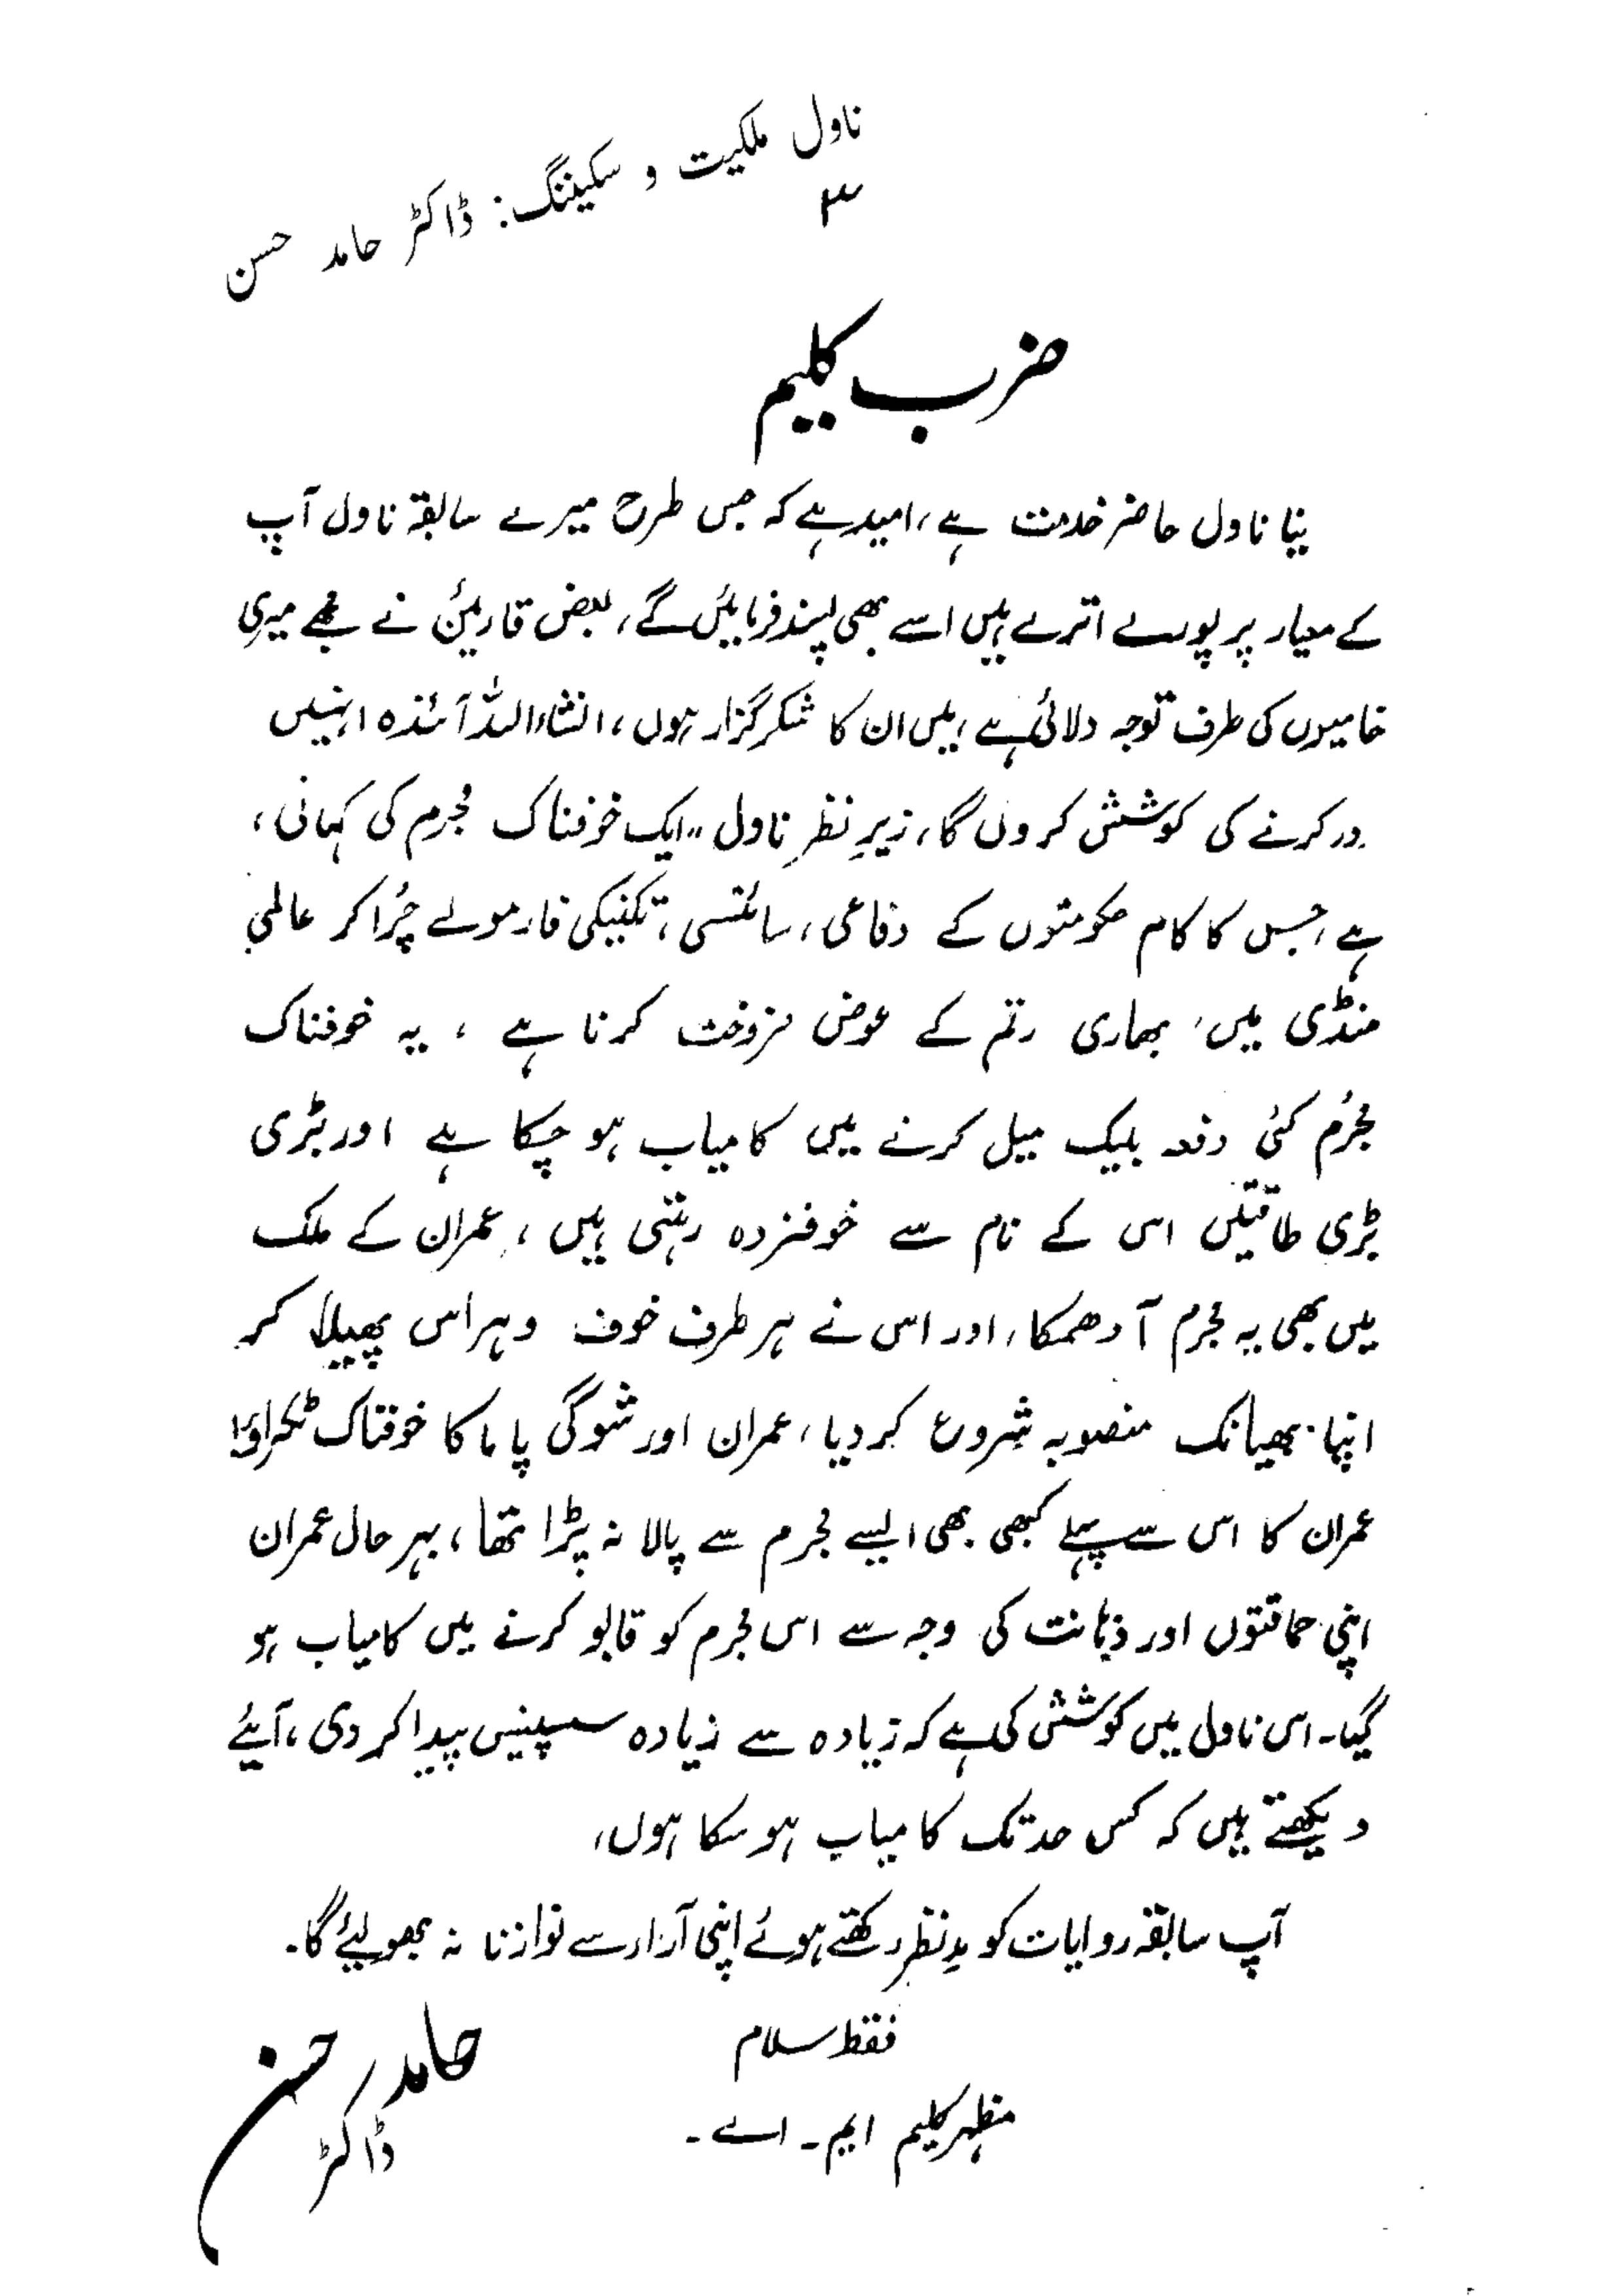 ناول ملکیت و سکیننگ: ڈاکٹر حامد حسن
۳
ضرب کلیم
نیا ناول حاضر خدمت ہے، امید ہے کہ جس طرح میرے سابقہ ناول آپ
کے معیار پر پورے اترے ہیں اسے بھی پسند فرمائیں گے، بعض قارئین نے مجھے میری
خامیوں کی طرف توجہ دلائی ہے، میں ان کا شکر گزار ہوں، انشاءاللہ آئندہ انہیں
دور کرنے کی کوشش کروں گا، زیرِ نظر ناول "ایک خوفناک مجرم کی کہانی،
ہے، جس کا کام حکومتوں کے دفاعی، سائنسی، تکنیکی فارمولے چُرا کر عالمی
منڈی میں، بھاری رقم کے عوض فروخت کرنا ہے، یہ خوفناک
مجرُم کئی دفعہ بلیک میل کرنے میں کامیاب ہو چکا ہے اور بڑی
بڑی طاقتیں اس کے نام سے خوفزدہ رہتی ہیں، عمران کے ملک
میں بھی یہ مجرم آ دھمکا، اور اس نے ہر طرف خوف و ہراس پھیلا کر
اپنا بھیانک منصوبہ شروع کر دیا، عمران اور شوگی پاما کا خوفناک ٹکراؤ!
عمران کا اس سے پہلے کبھی بھی ایسے مجرم سے پالا نہ پڑا تھا، بہر حال عمران
اپنی حماقتوں اور ذہانت کی وجہ سے اس مجرم کو قابو کرنے میں کامیاب ہو
گیا۔ اس ناول میں کوشش کی ہے کہ زیادہ سے زیادہ سسپنیس پیدا کر دی، آیئے
دیکھتے ہیں کہ کس حد تک کامیاب ہو سکا ہوں،
آپ سابقہ روایات کو مدِنظر رکھتے ہوئے اپنی آراء سے نوازنا نہ بھولیئے گا۔
فقط سلام
مظہر کلیم ایم۔ اے۔
حامد حسن
ڈاکٹر